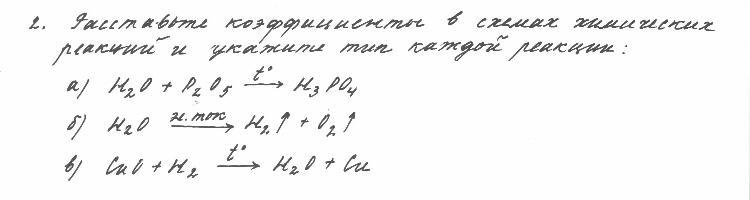 2. Расставьте коэффициенты в схемах химических
реакций и укажите тип каждой реакции:
а) H₂O + P₂O₅ —t°→ H₃PO₄
б) H₂O —эл. ток→ H₂↑ + O₂↑
в) CuO + H₂ —t°→ H₂O + Cu